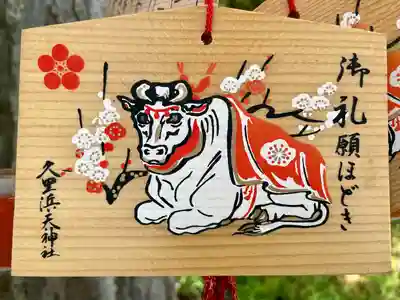 御礼願ほどき
久里浜天神社